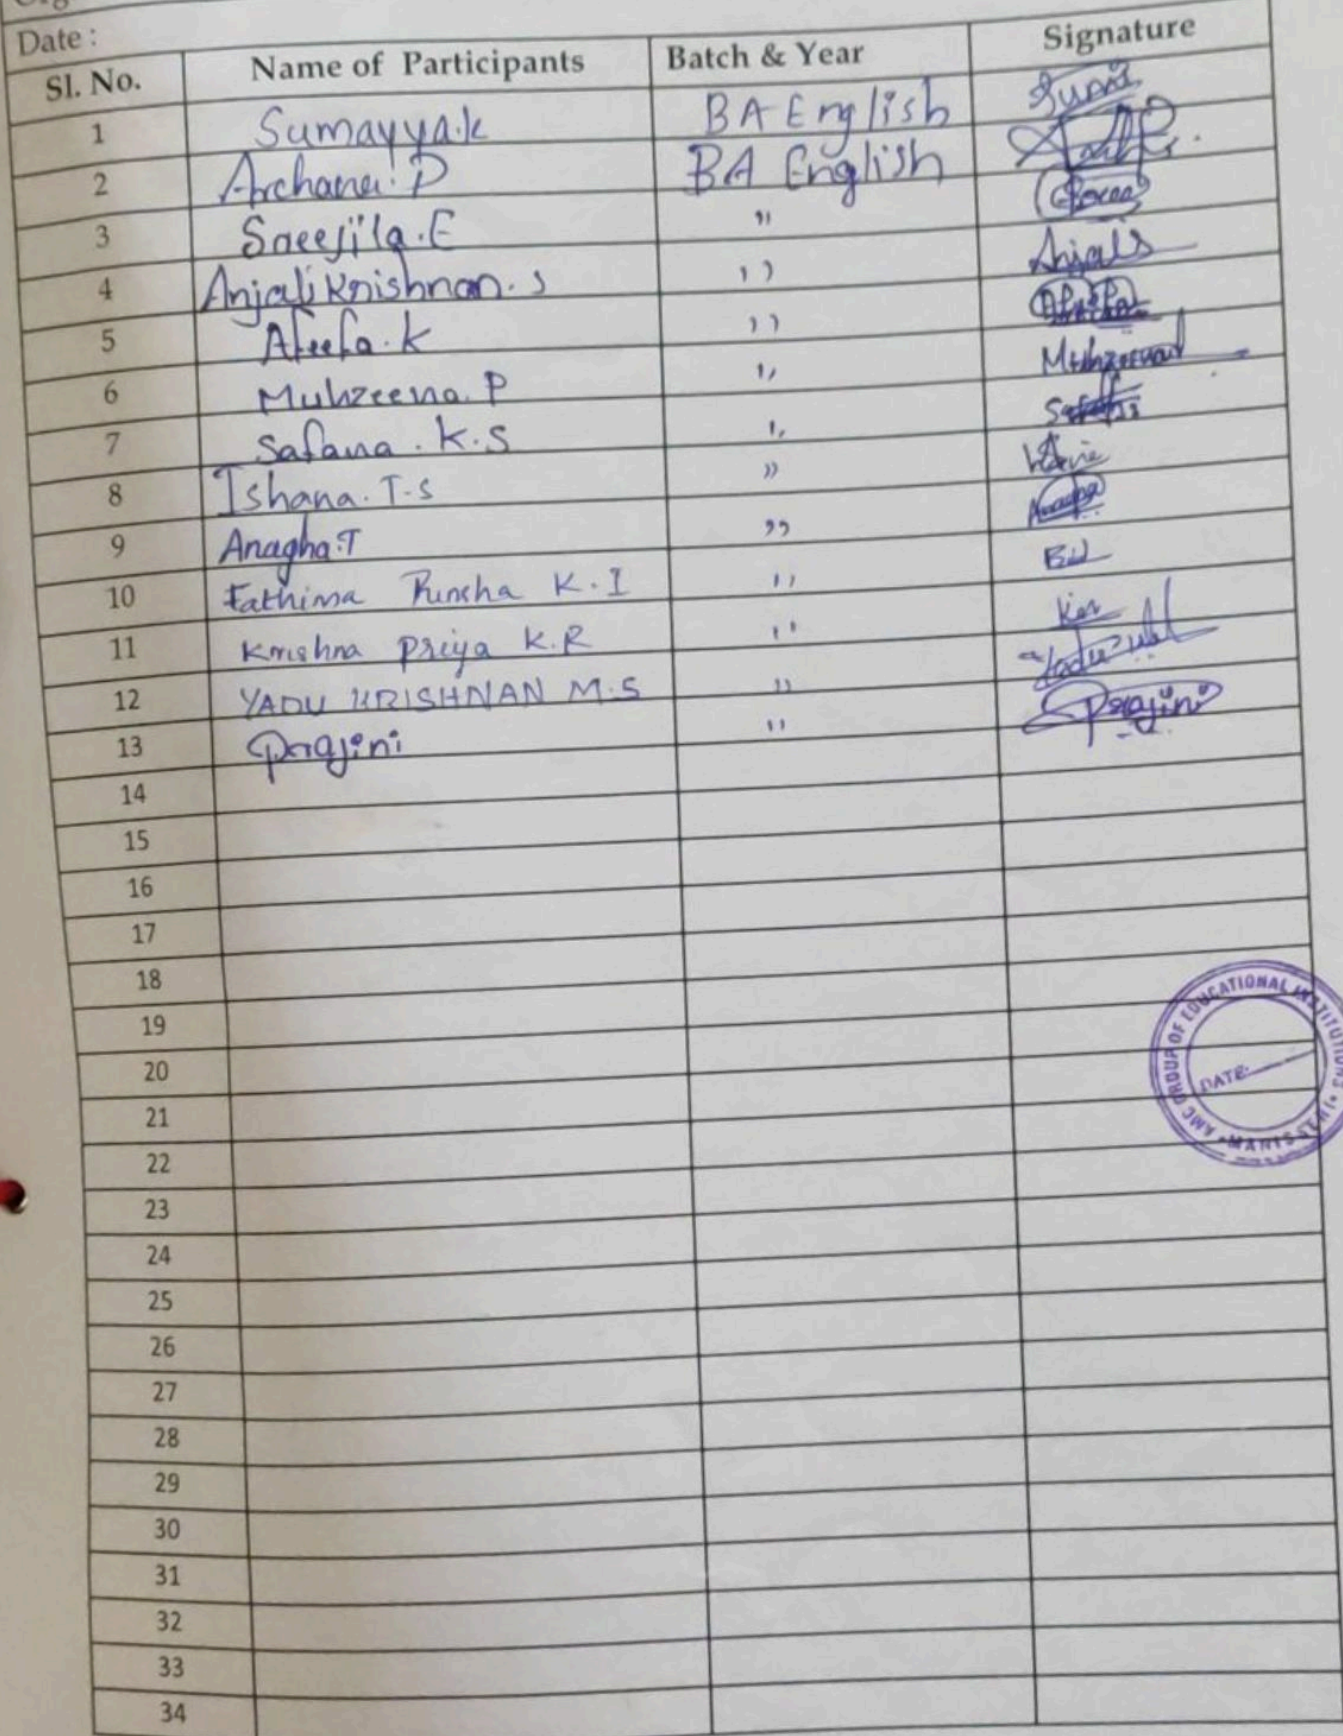 Date :
Sl. No. Name of Participants Batch & Year Signature
1 Sumayya.k BA English
2 Archana. P BA English
3 Sreejila. E ,,
4 Anjali Krishnan. S ,, Anjali
5 Afeefa. K ,,
6 Muhzeena. P ,, Muhzeena
7 Safana. K.S ,,
8 Ishana. T.S ,,
9 Anagha.T ,, Anagha
10 Fathima K.I ,,
11 Krishna Priya K.R ,,
12 YADU KRISHNAN M.S ,,
13 Prajini ,, Prajini
14
15
16
17
18
19
20
21
22
23
24
25
26
27
28
29
30
31
32
33
34
AMC GROUP OF EDUCATIONAL INSTITUTIONS
DATE: